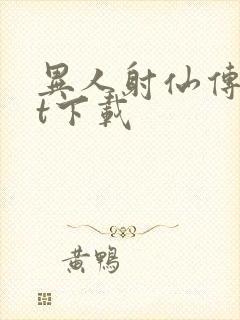 異人射仙傳
t下載
黃鴨